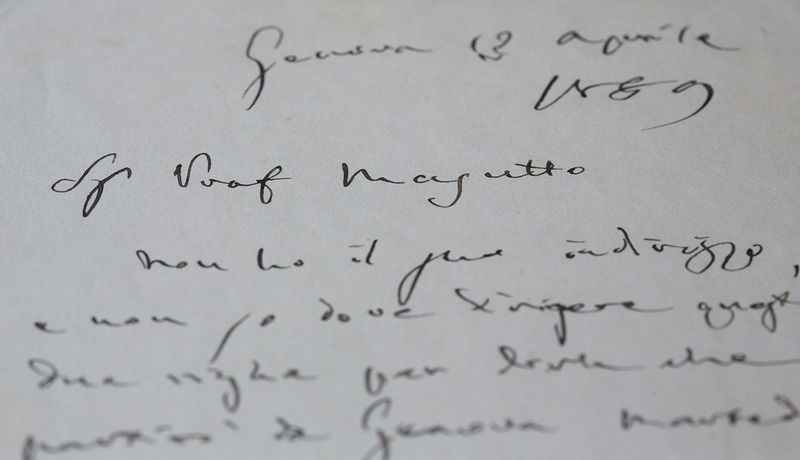 Genova 13 aprile
Prof
non ho il suo indirizzo,
e non so dove dirigere queste
due righe per dirle che
partirò da Genova martedì